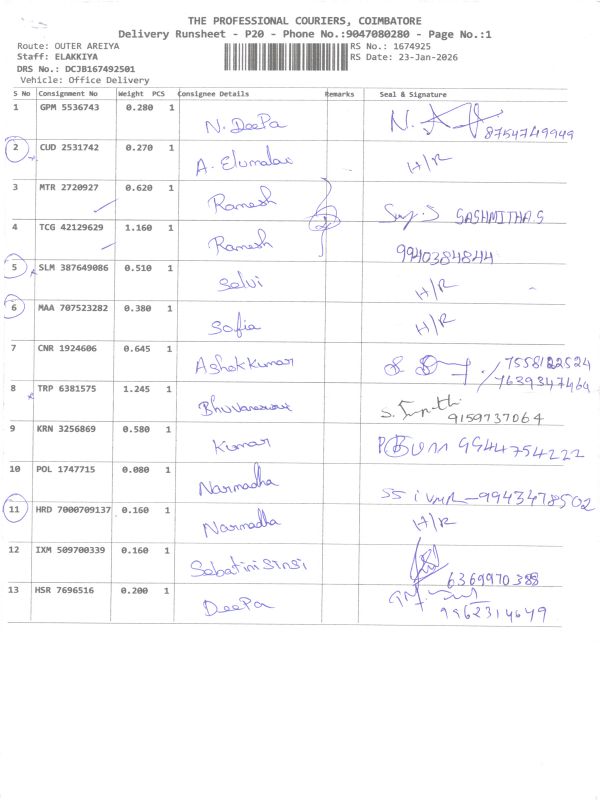 THE PROFESSIONAL COURIERS, COIMBATORE
Delivery Runsheet - P20 - Phone No.:9047080280 - Page No.:1
Route: OUTER AREIYA RS No.: 1674925
Staff: ELAKKIYA RS Date: 23-Jan-2026
DRS No.: DCJB167492501
Vehicle: Office Delivery
S No Consignment No Weight PCS Consignee Details Remarks Seal & Signature
1 GPM 5536743 0.280 1 N. DeePa 8754749949
2 CUD 2531742 0.270 1 A. Elumalai H/R
3 MTR 2720927 0.620 1 Ramesh SASHMITHA.S
4 TCG 42129629 1.160 1 Ramesh 9940384844
5 SLM 387649086 0.510 1 Selvi H/R
6 MAA 707523282 0.380 1 Sofia H/R
7 CNR 1924606 0.645 1 AshokKumar 7558122524
7639347464
8 TRP 6381575 1.245 1 Bhuvaneswari 9159737064
9 KRN 3256869 0.580 1 Kumar 9944754222
10 POL 1747715 0.080 1 Narmadha 9943478502
11 HRD 7000709137 0.160 1 Narmadha H/R
12 IXM 509700339 0.160 1 6369970388
13 HSR 7696516 0.200 1 DeePa 9962314649